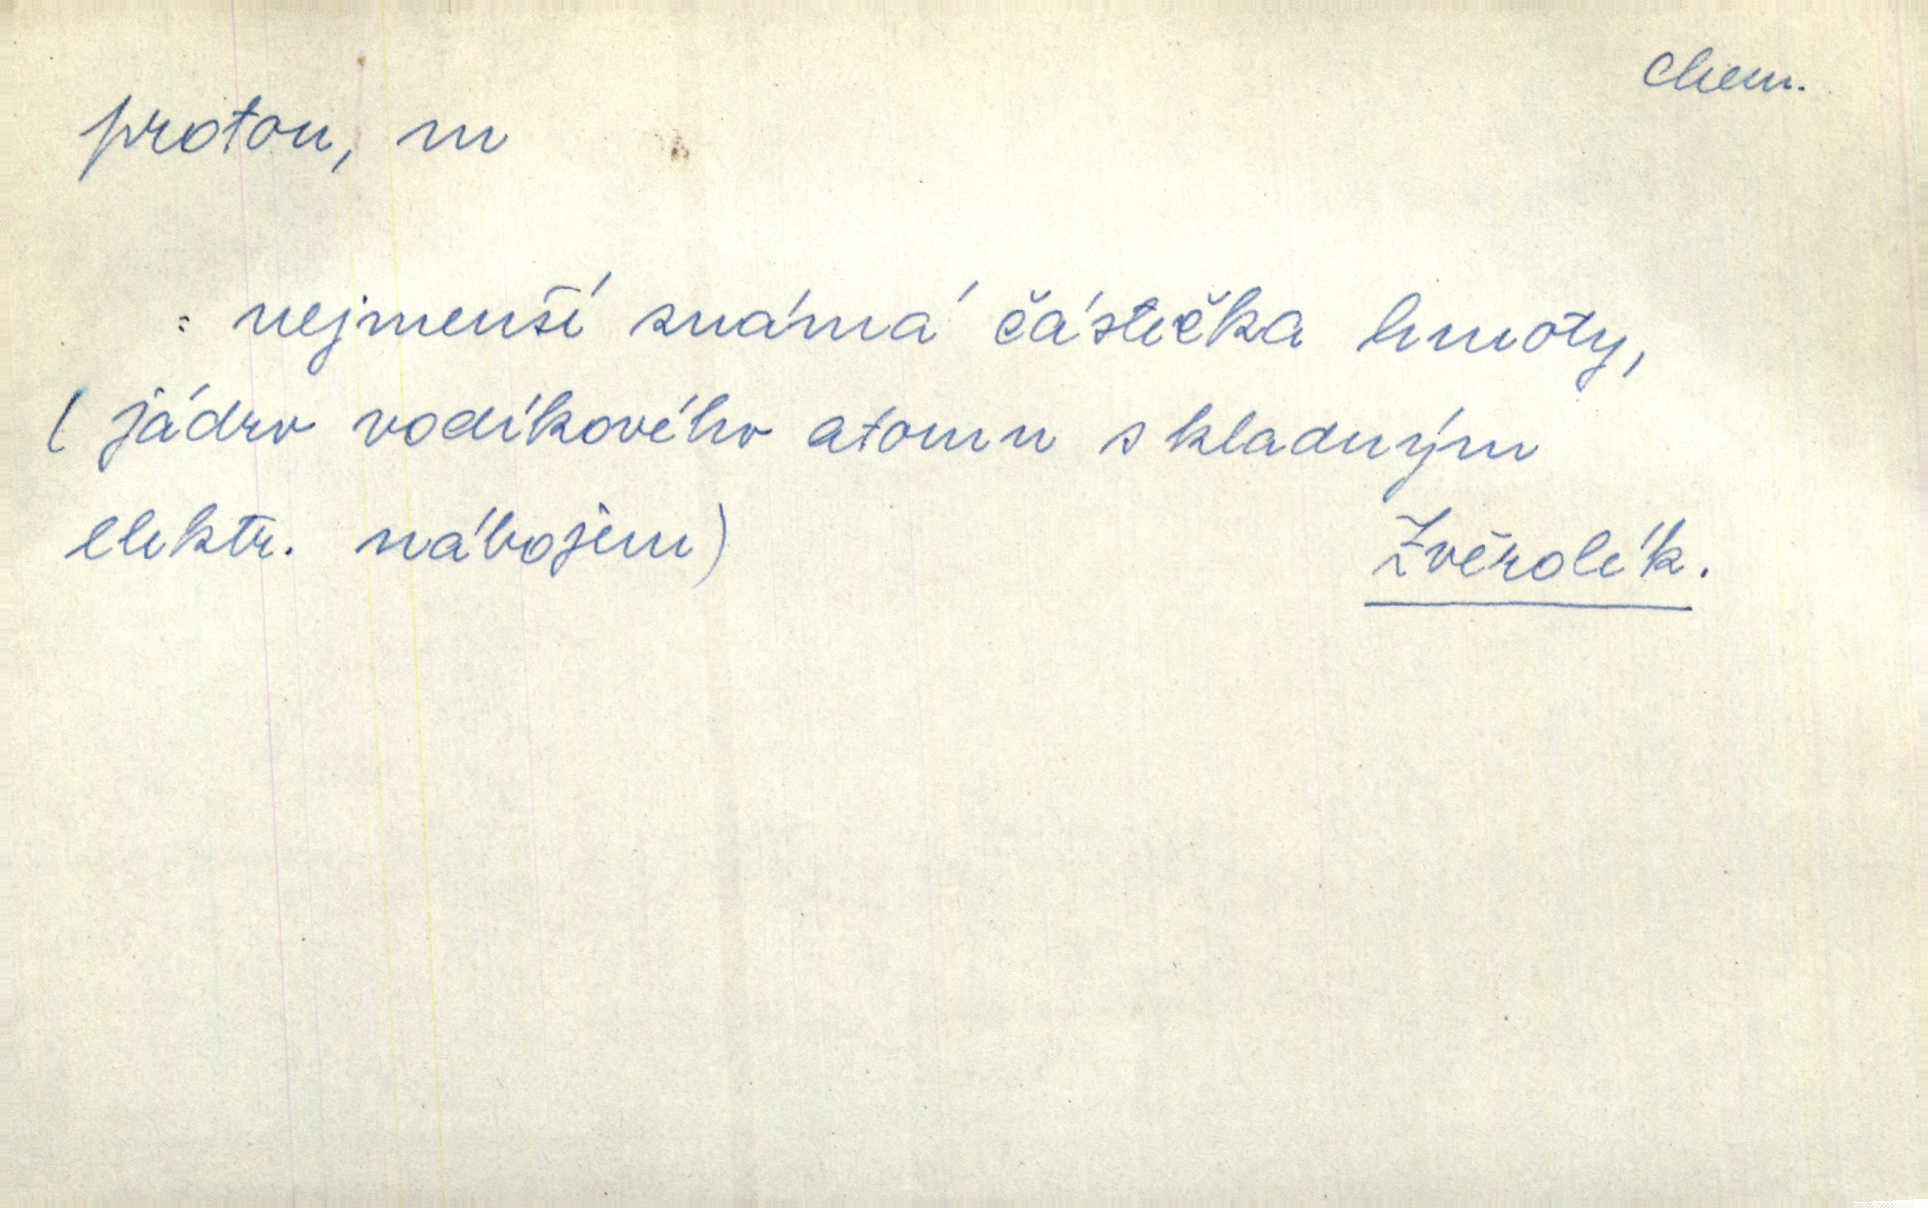 chem.
proton, m
: nejmenší známá částečka hmoty,
( jádro vodíkového atomu s kladným
elektr. nábojem)
Zvěrolék.